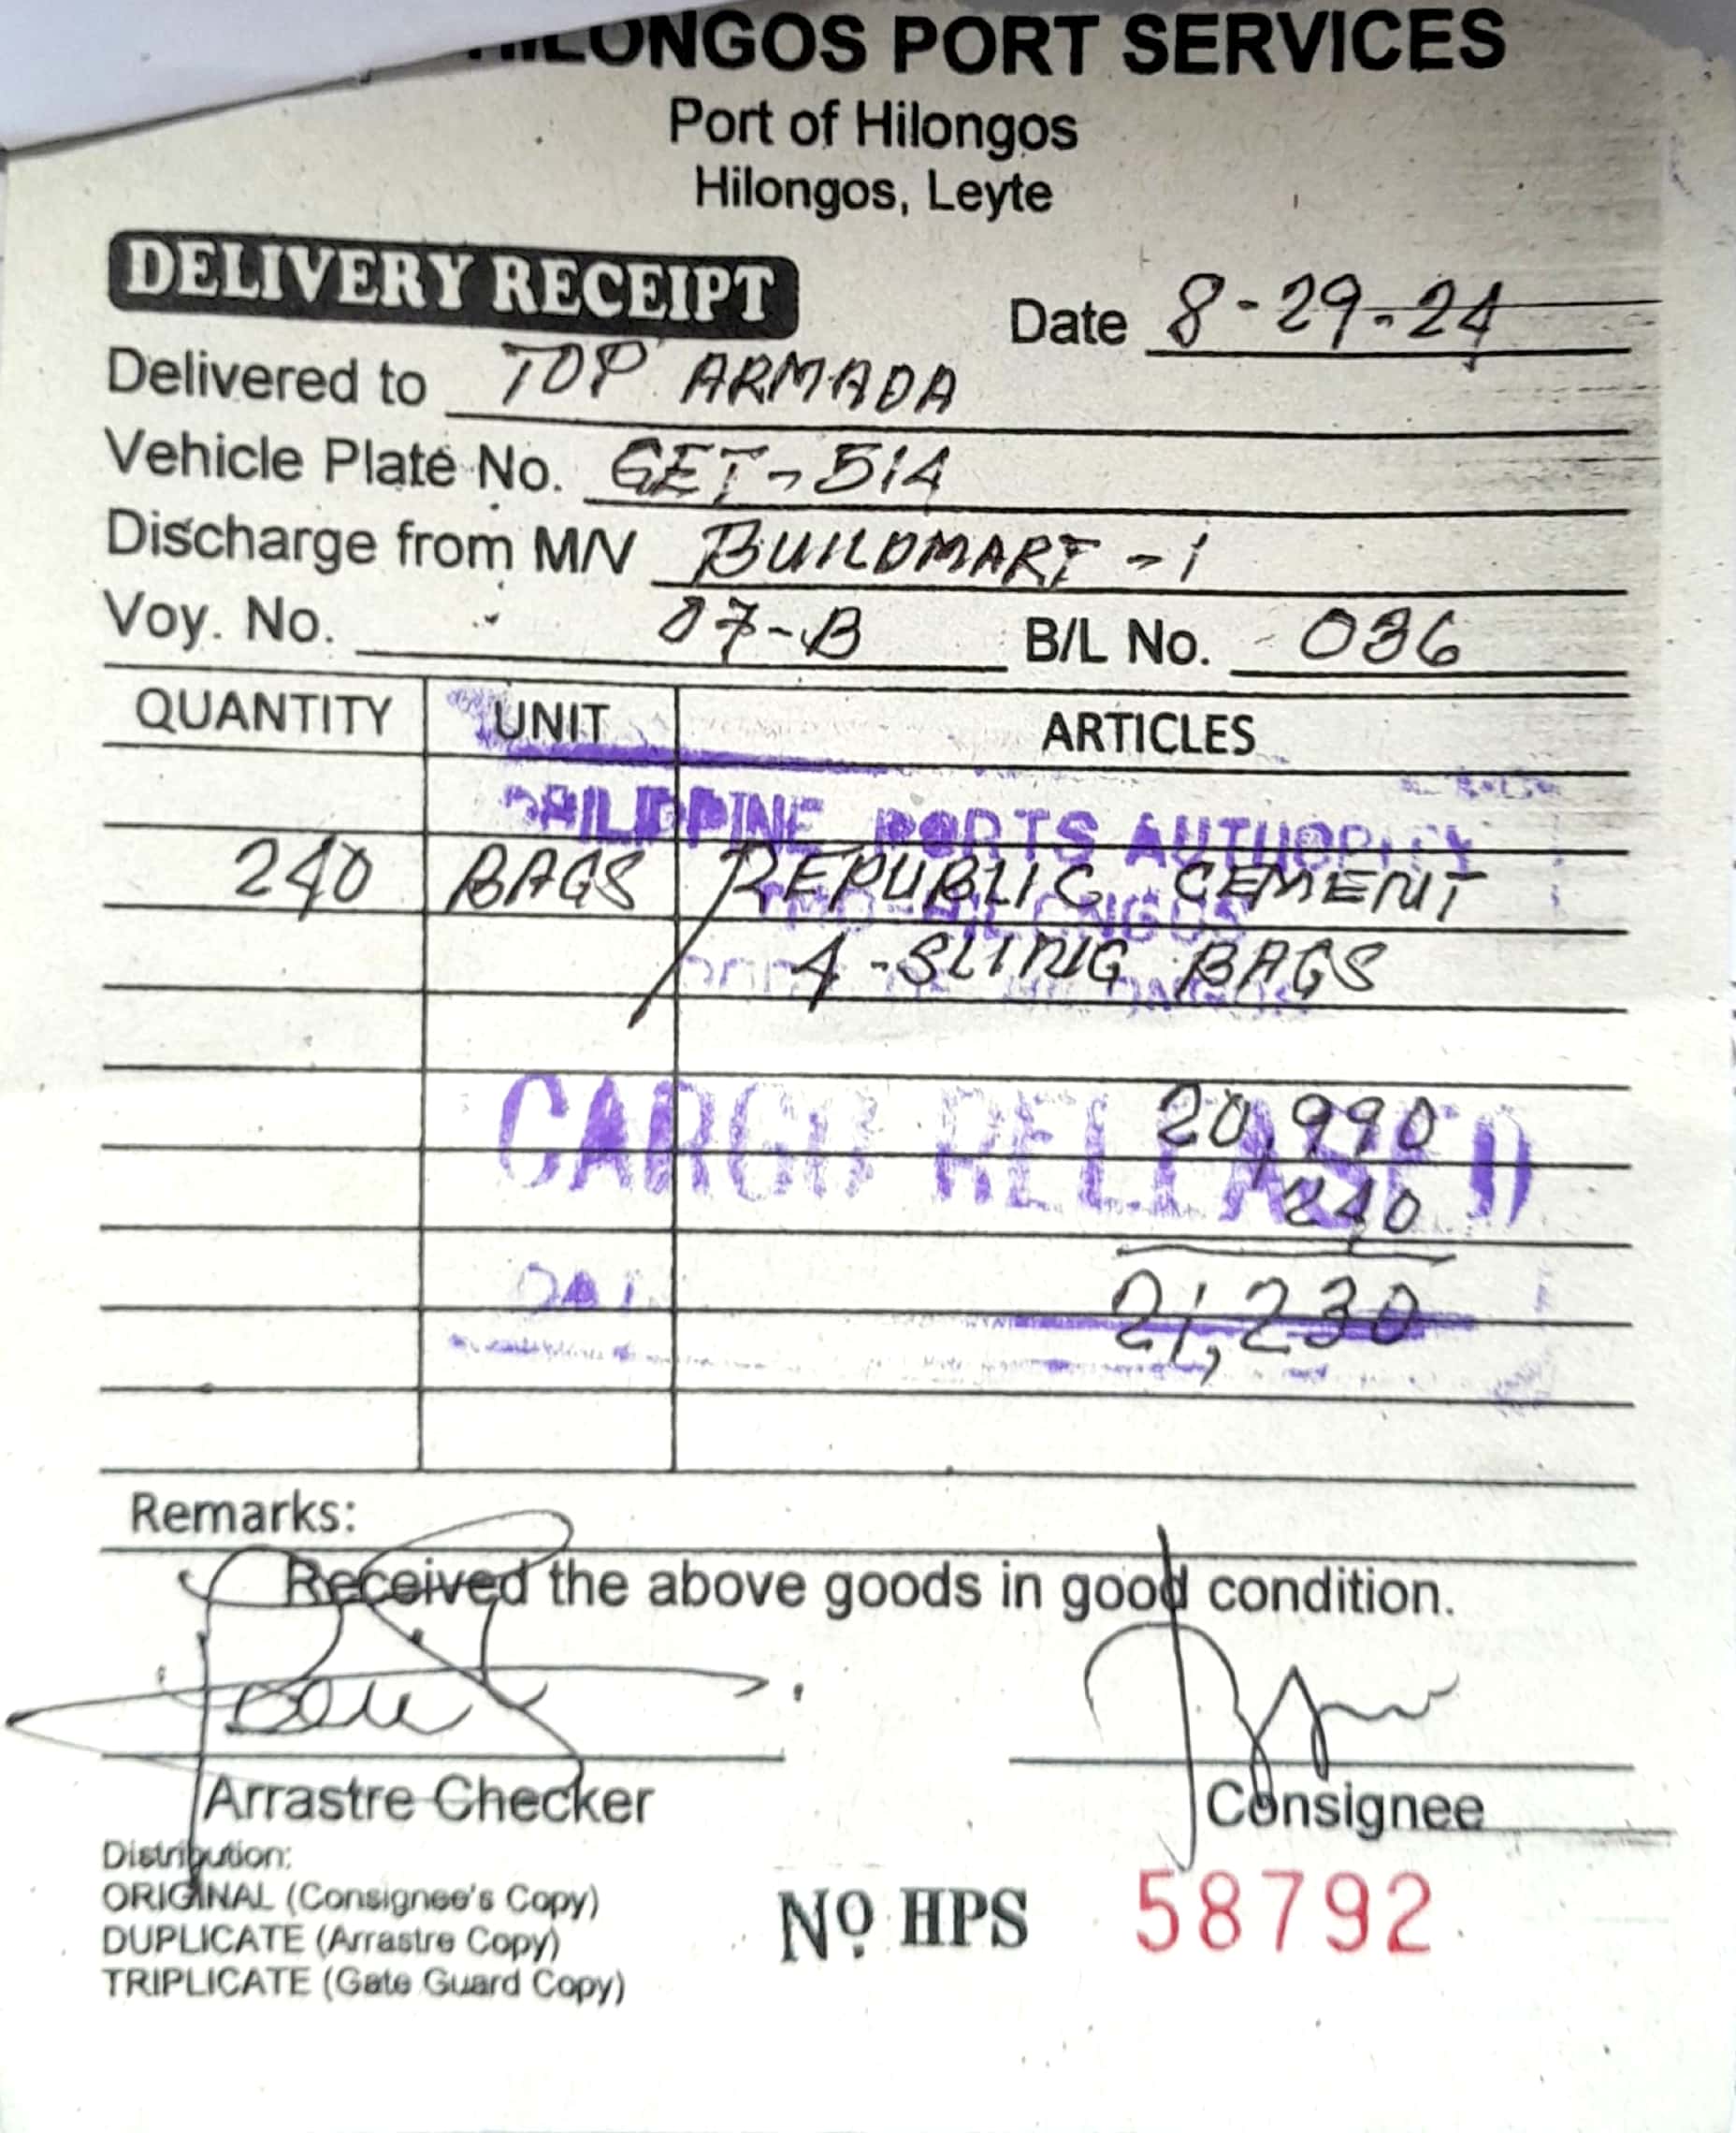 HILONGOS PORT SERVICES
Port of Hilongos
Hilongos, Leyte
DELIVERY RECEIPT
Date 8-29-24
Delivered to TOP ARMADA
Vehicle Plate No. GET-514
Discharge from M/V BUILDMART -1
Voy. No. 07-B B/L No. 036
QUANTITY UNIT ARTICLES
PHILIPPINE PORTS AUTHORITY
240 BAGS REPUBLIC CEMENT
HILONGOS
4 -SLING BAGS
20,990
CARGO RELEASED
240
21,230
Remarks:
Received the above goods in good condition.
Arrastre Checker
Consignee
Distribution:
ORIGINAL (Consignee's Copy)
DUPLICATE (Arrastre Copy)
TRIPLICATE (Gate Guard Copy)
Nº HPS 58792